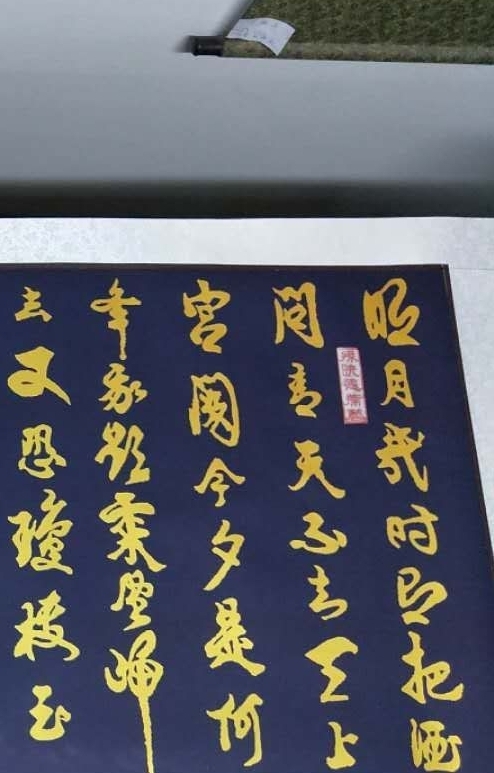 明月幾时有把酒
問青天不知天上
宫闕今夕是何
年我欲乘風歸
去又恐瓊楼玉